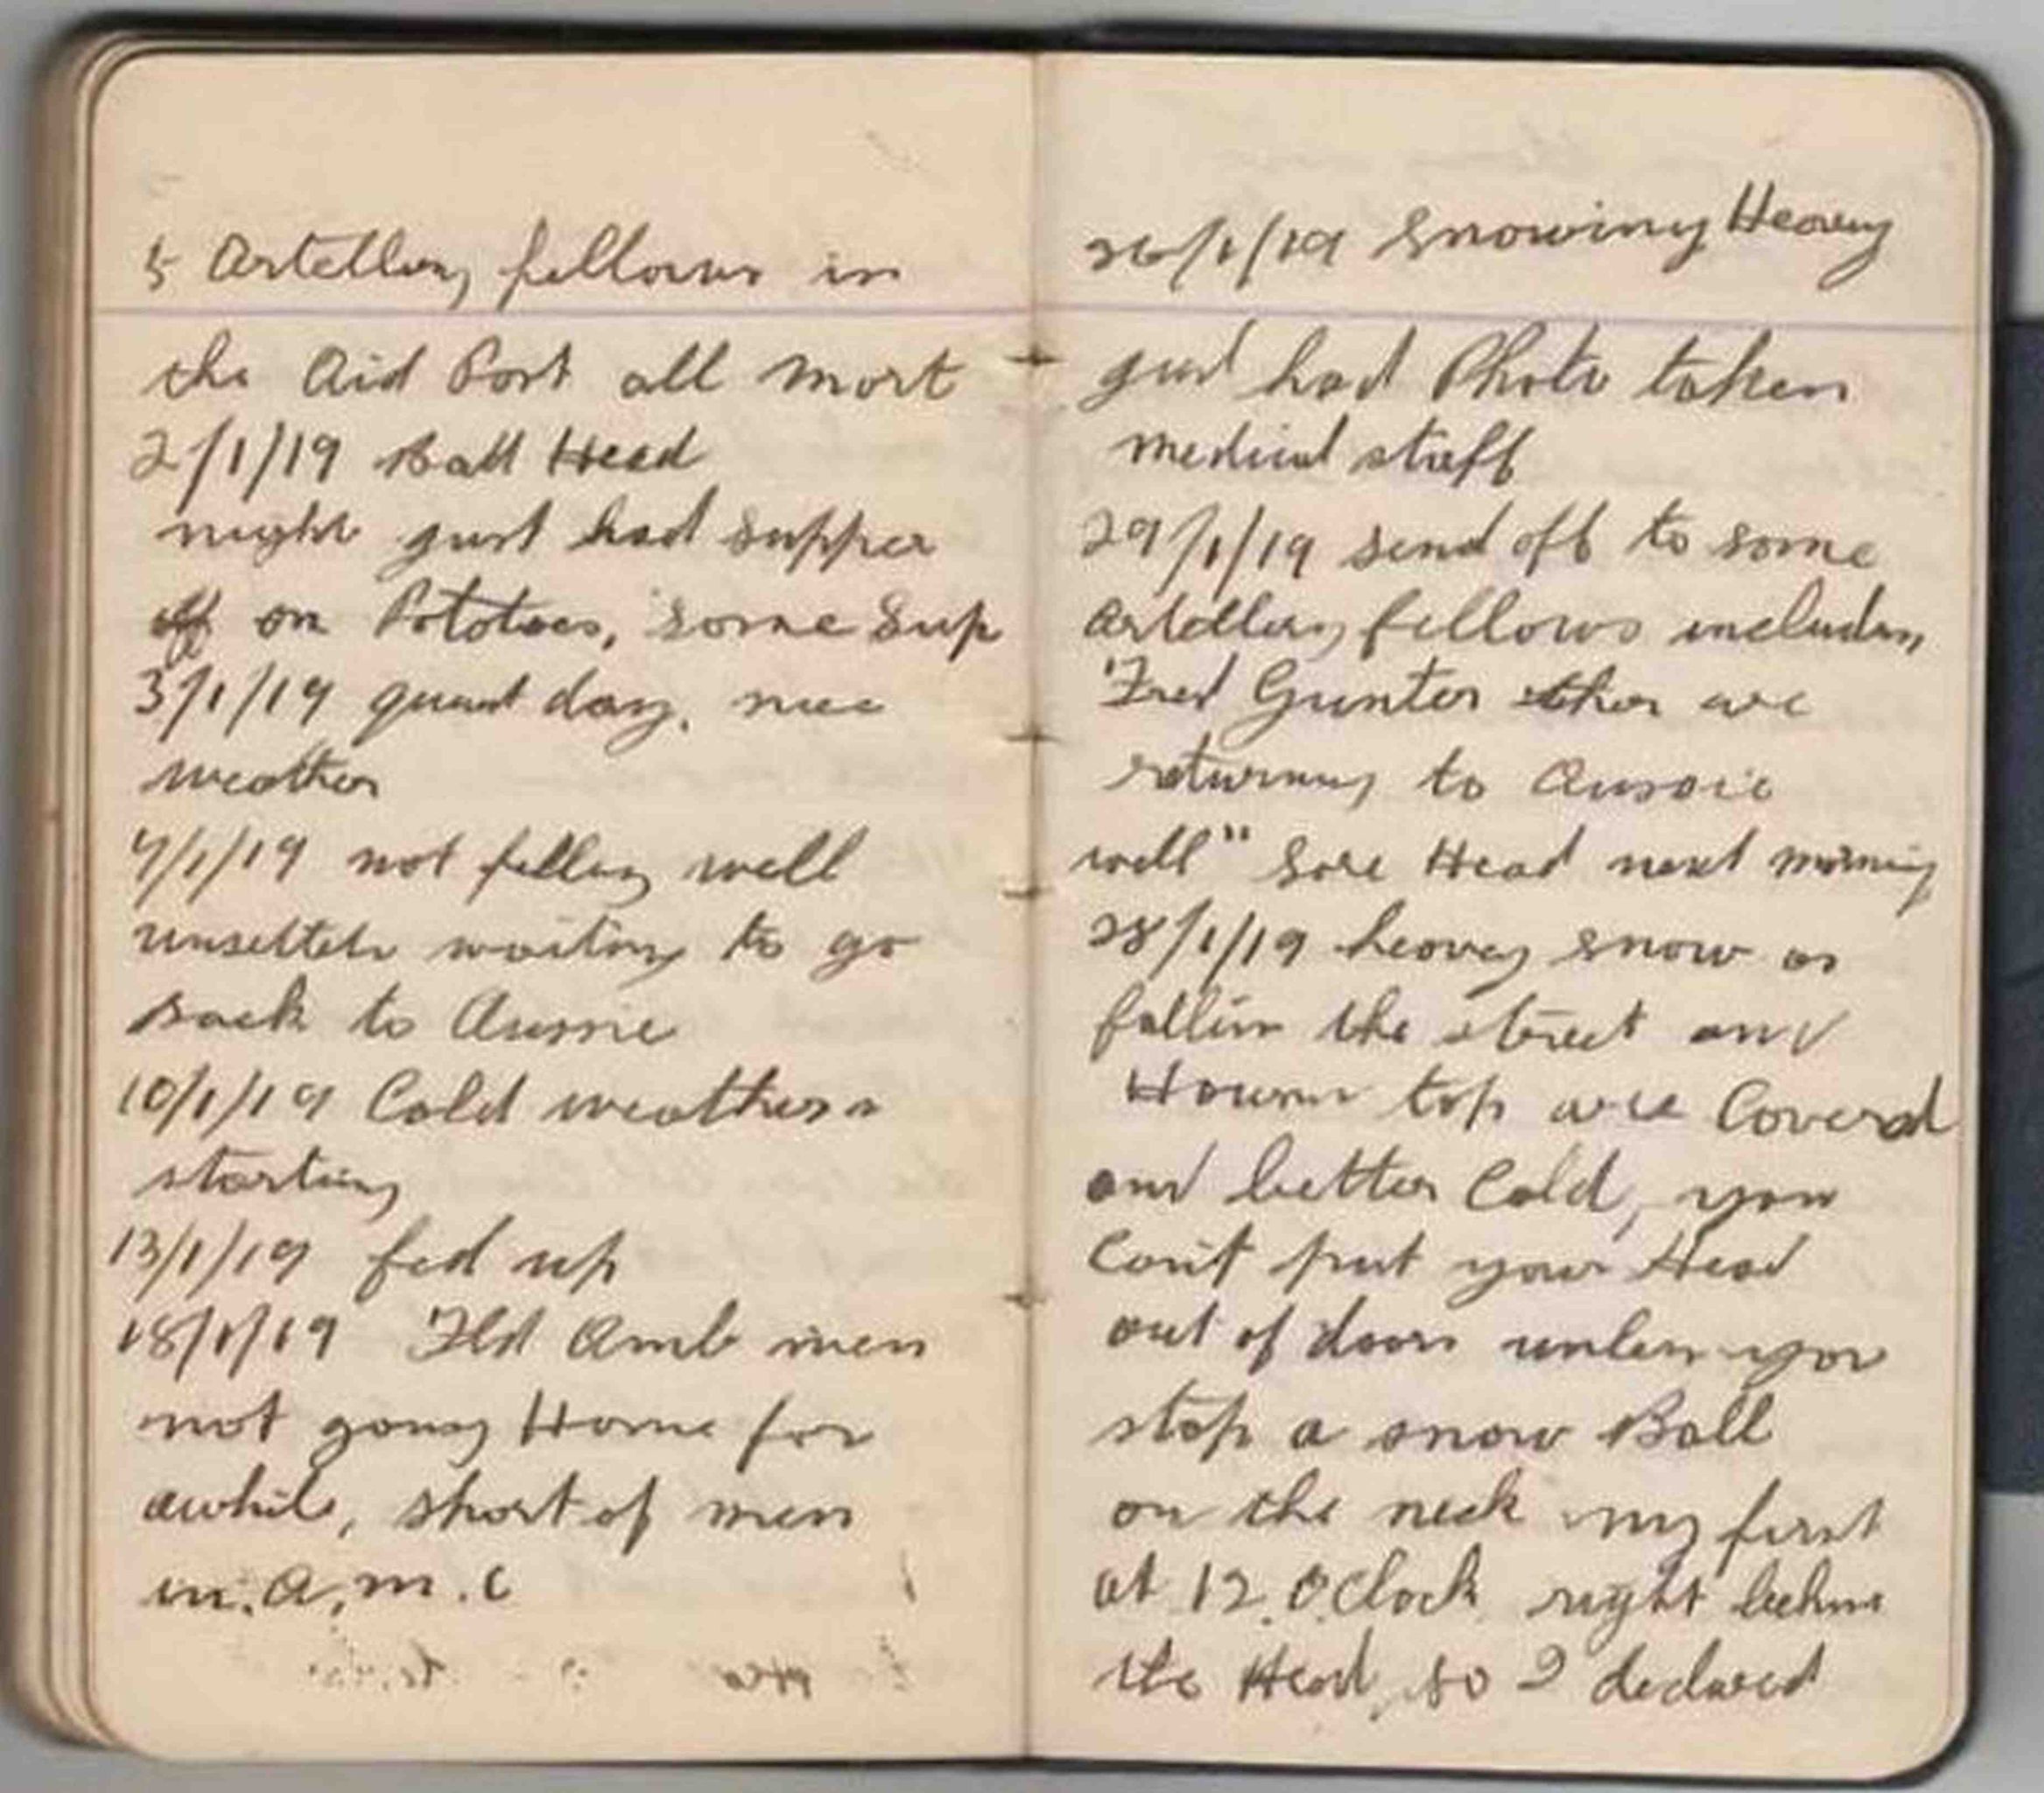 5 Artellery fellows in
the Aid Post all most
2/1/19 Ball Head
night just had supper
off on Pototoes, some sup
3/1/19 quiet day, nice
weather
7/1/19 not felling well
unsetteh waiting to go
back to Aussie
10/1/19 Cold weather
starting
13/1/19 fed up
18/1/19 Fld Amb men
not going Home for
awhile, short of men
in. A.M.C
26/1/19 Snowing Heavey
just had Photo taken
medical staff
29/1/19 send off to some
Artellery fellows including
Fred Gunter are
returning to Aussie
well" Sore Head next morning
28/1/19 heavey snow as
fallin the street and
top are Coverd
and better Cold, you
Can't put your Head
out of doors unless you
stop a snow Ball
on the neck my first
at 12.O.Clock right behind
the Head, so I declared